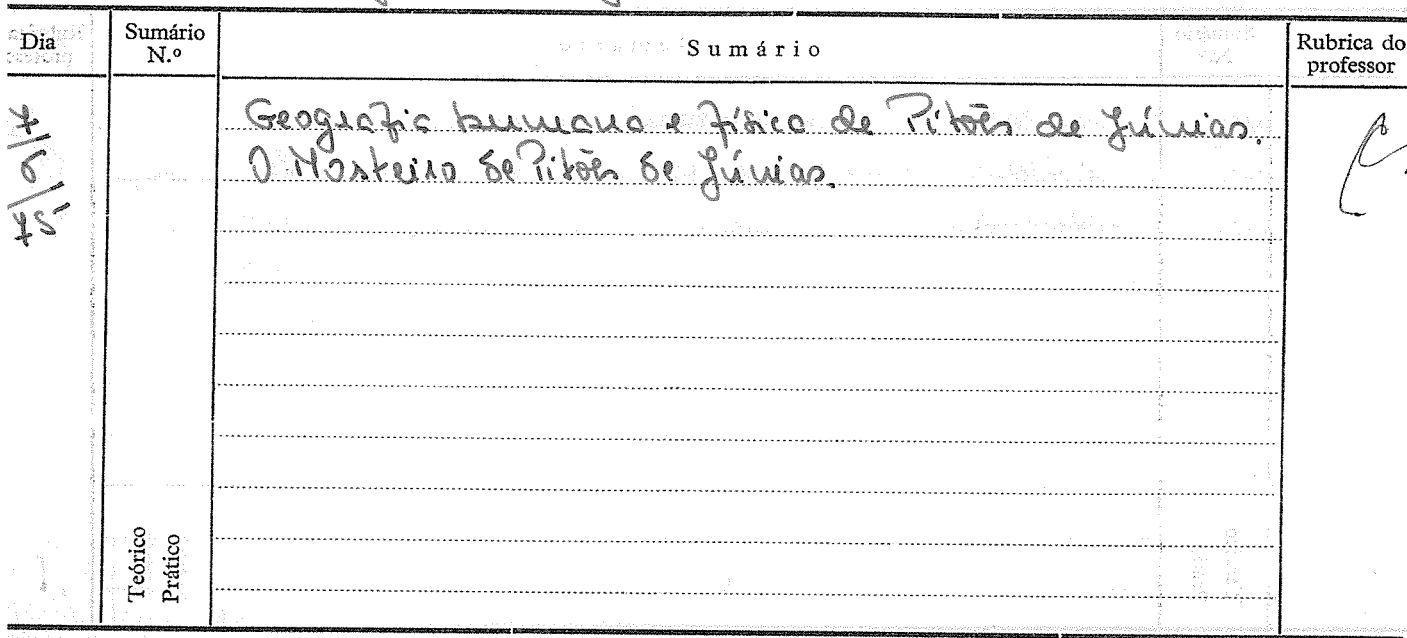 Dia
Sumário
N.º
Sumário
Rubrica do
professor
7/6/75
Geografia humana e física de Pitões de Júnias.
O Mosteiro de Pitões de Júnias.
Teórico
Prático